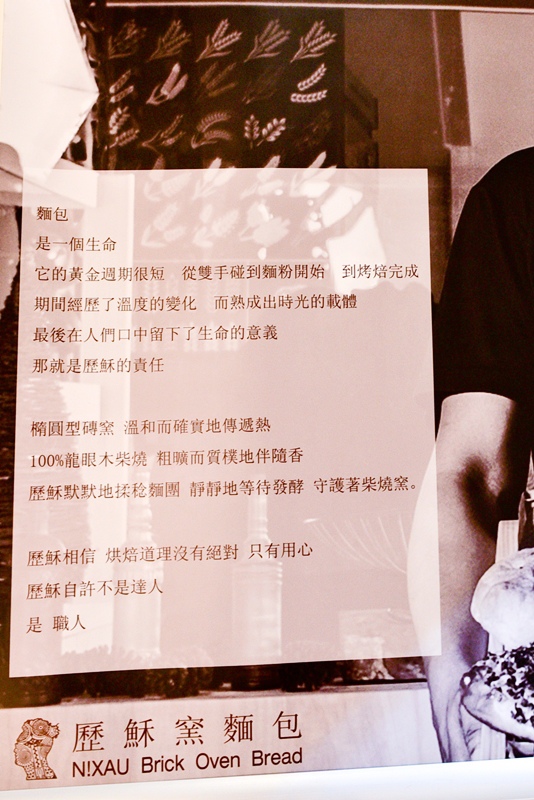 麵包
是一個生命
它的黃金週期很短　從雙手碰到麵粉開始　到烤焙完成
期間經歷了溫度的變化　而熟成出時光的載體
最後在人們口中留下了生命的意義
那就是歷穌的責任
橢圓型磚窯 溫和而確實地傳遞熱
100%龍眼木柴燒 粗曠而質樸地伴隨香
歷穌默默地揉稔麵團 靜靜地等待發酵 守護著柴燒窯。
歷穌相信 烘焙道理沒有絕對 只有用心
歷穌自許不是達人
是 職人
歷穌窯麵包
N!XAU Brick Oven Bread